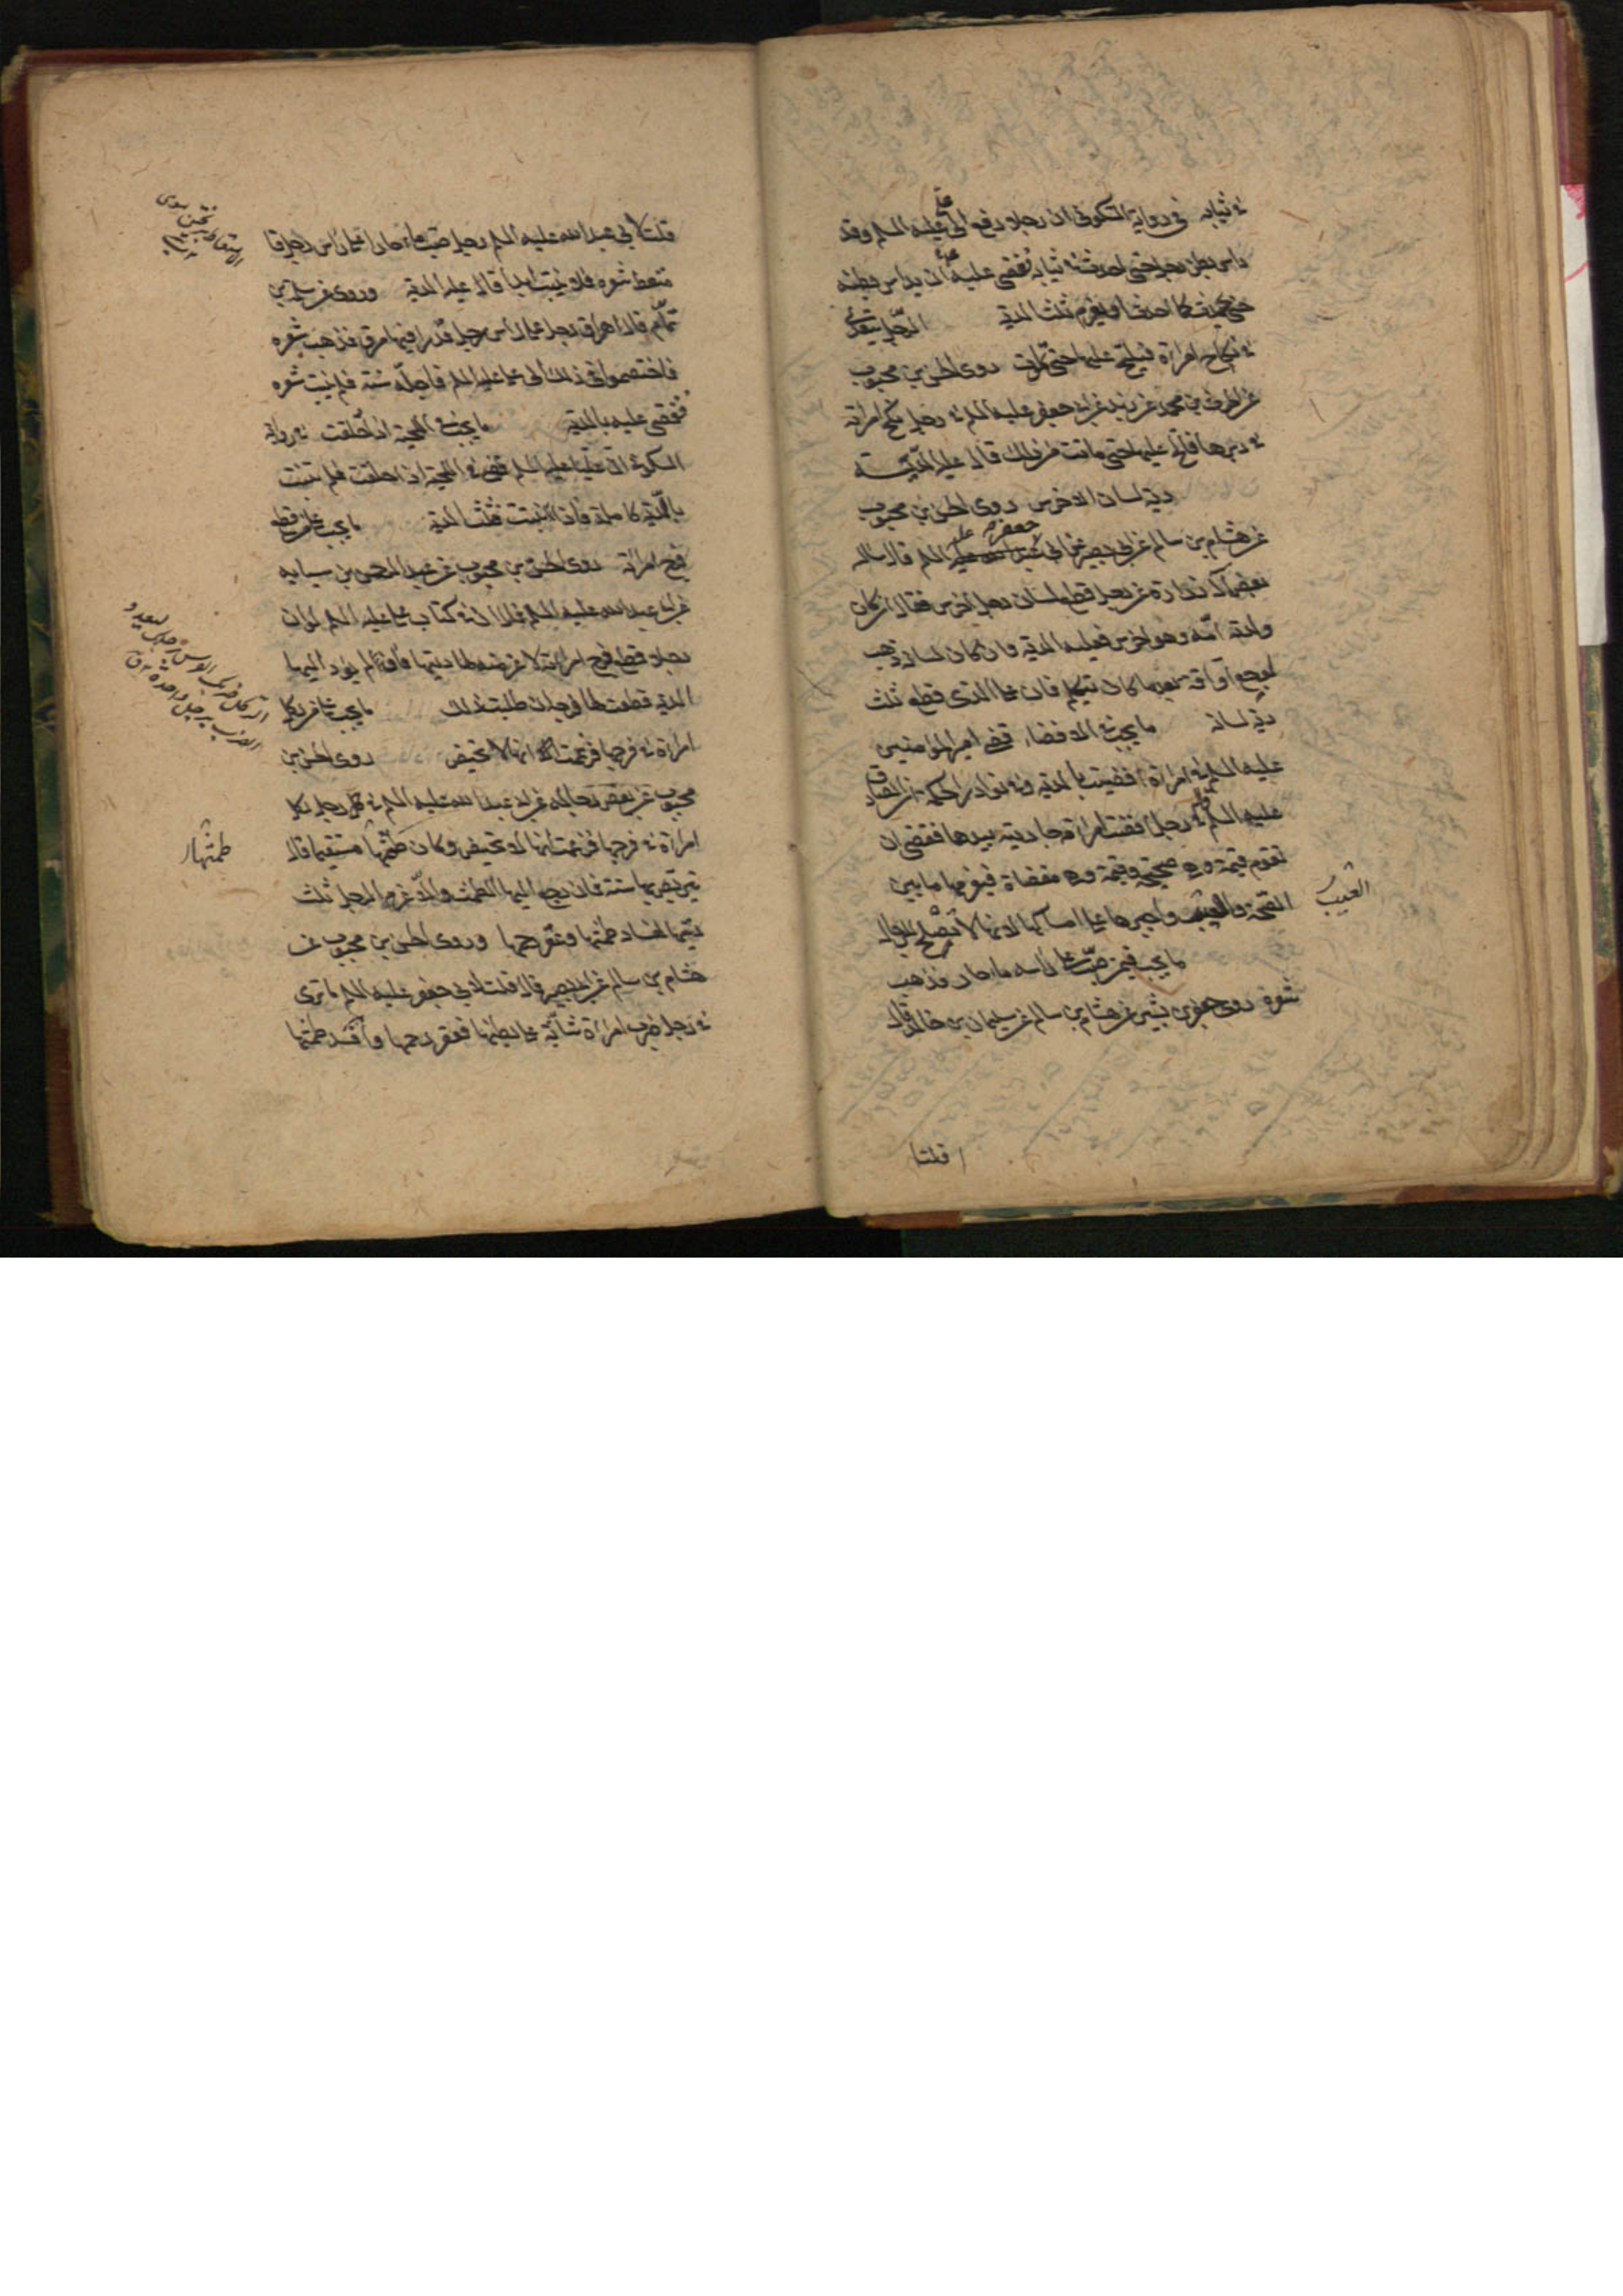 في ثيابه في رواية السكوني ان رجلا رفع الى علي عليه السلم وقد
داس بطن رجل حتى احدث في ثيابه فقضى عليه ان يداس بطنه
حتى يحدث كما احدث او يغرم ثلث الدية الرجل يتعدى
في نكاح امراة فيلح عليها حتى تموت روى الحسن بن محبوب
عن الحرث بن محمد عن زيد عن ابي جعفر عليه السلم في رجل نكح امراة
في دبرها فالح عليها حتى ماتت من ذلك قال عليه الدية
دية لسان الاخرس روى الحسن بن محبوب
عن هشام بن سالم عن ابي بصير عن ابي جعفر عليه السلم قال ساله
بعض آل زرارة عن رجل قطع لسان رجل اخرس فقال ان كان
ولدته امه وهو اخرس فعليه الدية وان كان لسانه ذهب
لوجع او آفة بعد ما كان يتكلم فان على الذي قطع ثلث
دية لسانه ما يجب في الافضاء قضى امير المؤمنين
عليه السلم في امراة افضيت بالدية وفي نوادر الحكمة ان الصادق
عليه السلم قال في رجل افضت امراته جاريته بيدها فقضى ان
تقوم قيمة وهي صحيحة وقيمة وهي مفضاة فيغرمها ما بين
الصحة والعيب واجبرها على امساكها لانها لا تصلح للرجال
العيب
ما يجب فيمن صب على راسه ماء حار فذهب
شعره روى جعفر بن بشير عن هشام بن سالم عن سليمان بن خالد قال
قلت
قلت لابي عبد الله عليه السلم رجل صب ماء حارا على راس رجل فا
متعط شعره فلا ينبت ابدا قال عليه الدية وروى عن سلمة بن
تمام قال اهراق رجل على راس رجل قدرا فيها مرق فذهب شعره
فاختصموا في ذلك الى علي عليه السلم فاجله سنة فلم ينبت شعره
فقضى عليه بالدية ما يجب في اللحية اذا حلقت في رواية
السكوني ان عليا عليه السلم قضى في اللحية اذا حلقت فلم تنبت
بالدية كاملة فاذا نبتت فثلث الدية ما يجب على من قطع
فرج امراته روى الحسن بن محبوب عن عبد الرحمن بن سيابه
عن ابي عبد الله عليه السلم قال ان في كتاب علي عليه السلم لو ان
رجلا قطع فرج امراته لاغرمنه لها ديتها فان لم يؤد اليها
الدية قطعت لها فرجه ان طلبت ذلك ما يجب على من ركل
امراة في فرجها فزعمت انها لا تحيض روى الحسن بن
محبوب عن بعض رجاله عن ابي عبد الله عليه السلم في رجل ركل
امراة في فرجها فزعمت انها لا تحيض وكان طمثها مستقيما قال
طمثها
يتربص بها سنة فان رجع اليها الطمث والا غرم الرجل ثلث
ديتها لفساد طمثها وعقر رحمها وروى الحسن بن محبوب عن
هشام بن سالم عن ابي بصير قال قلت لابي جعفر عليه السلم ما ترى
في رجل ضرب امراة شابة على بطنها فعقر رحمها وافسد طمثها